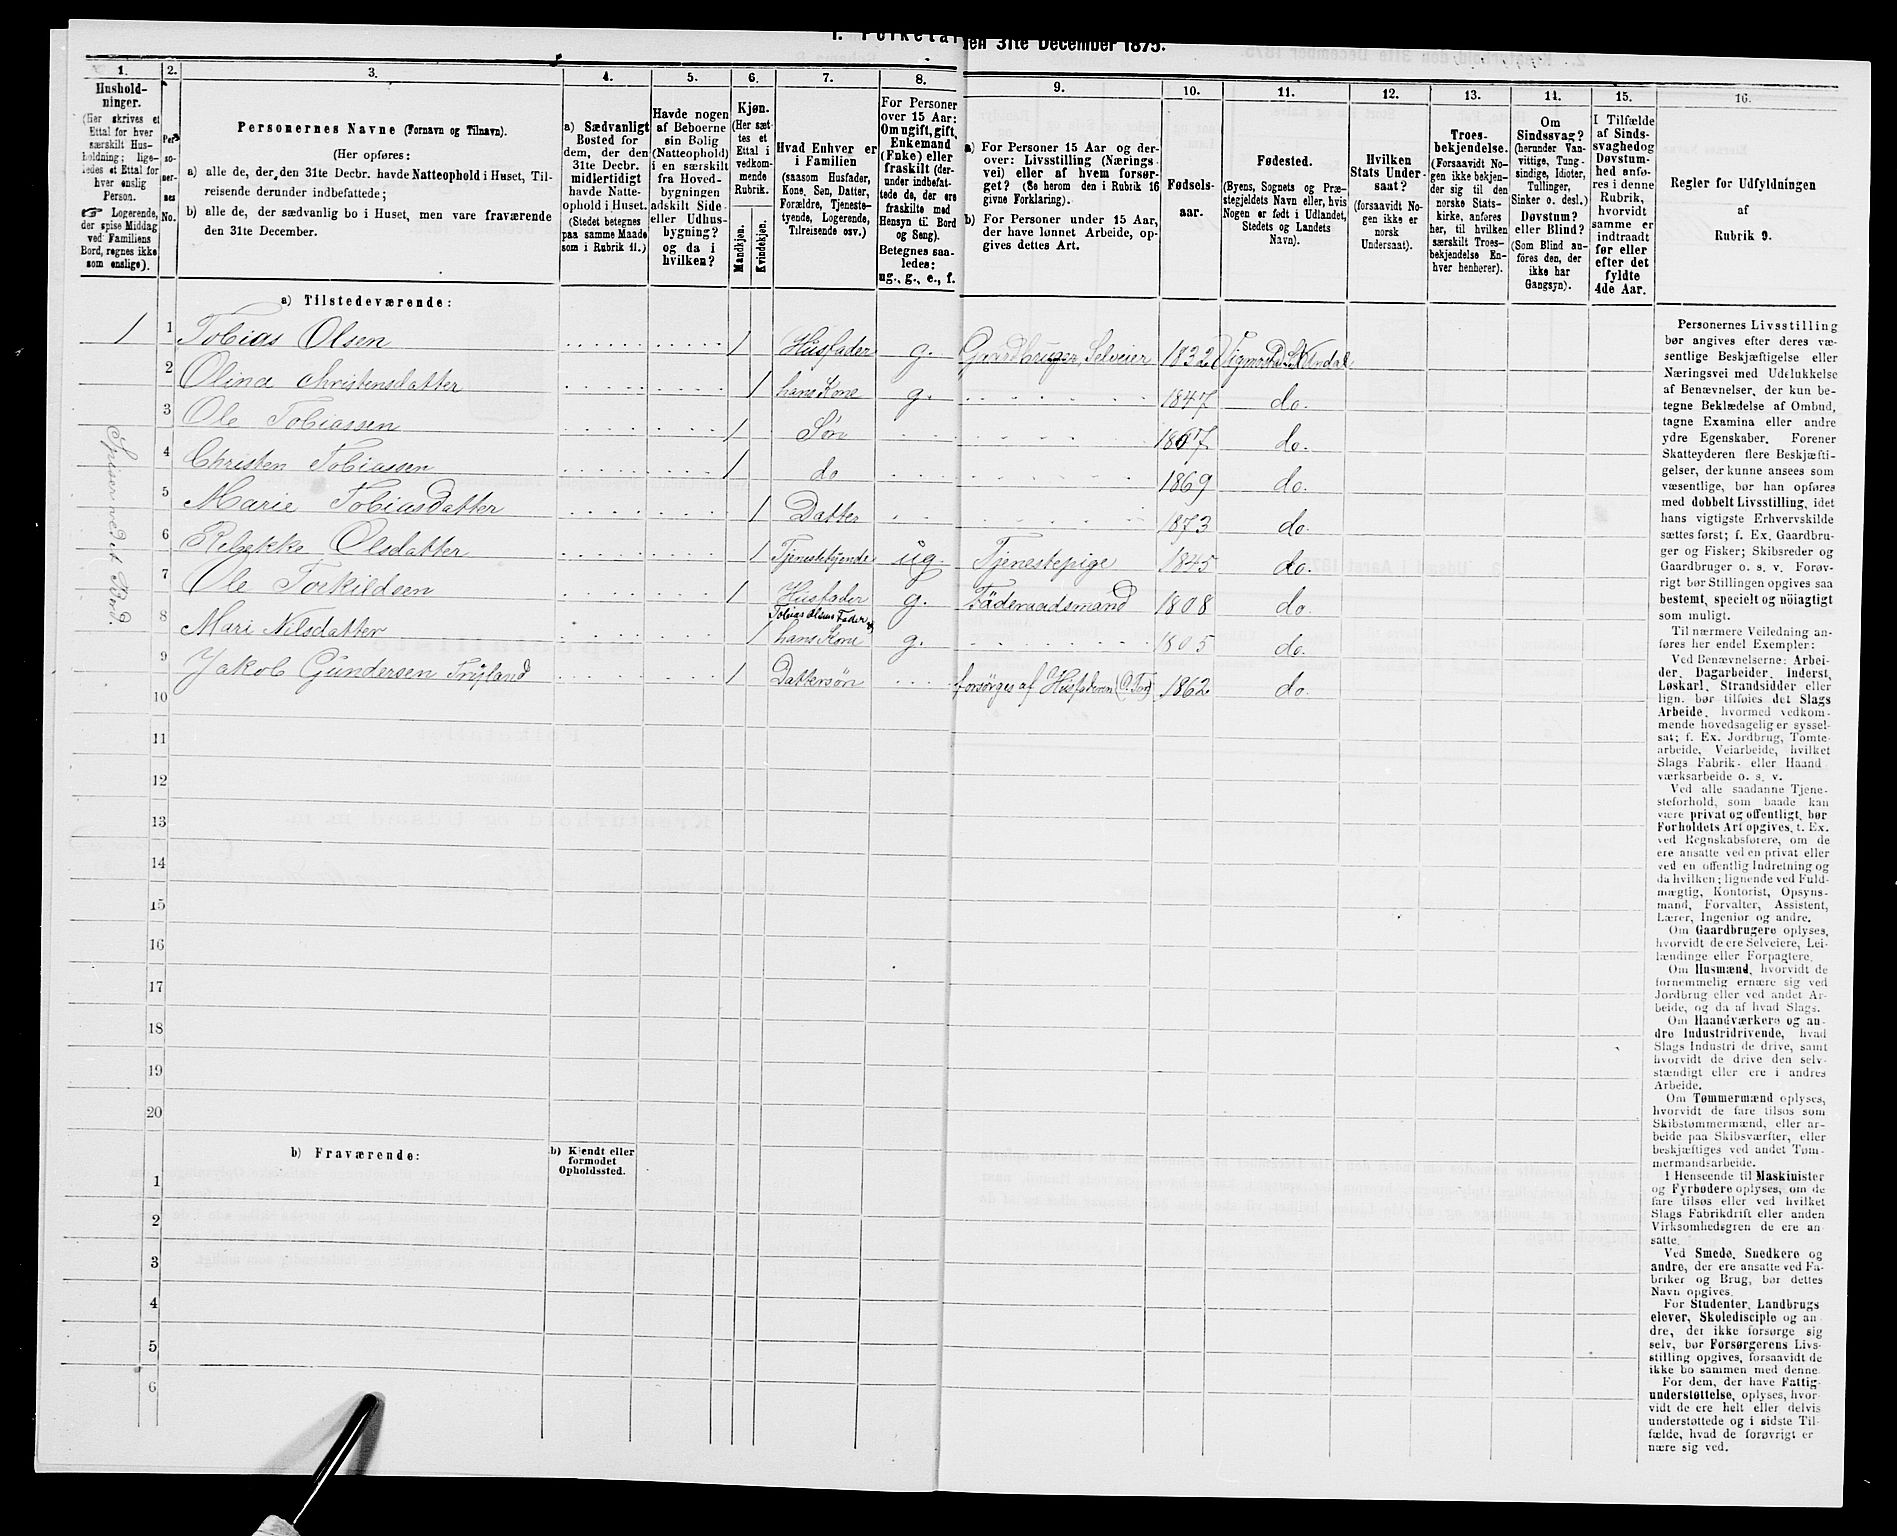 1. Folketæl den 31te December 1875.
1.
Hushold-
ninger.
(Her skrives et
Ettal for hver
særskilt Hus-
holdning; lige-
ledes et Ettal for
hver enslig
Person.
☞ Logerende,
der spise Middag
ved Familiens
Bord, regnes ikke
som enslige).
2.
Per-
so-
ner-
nes
No.
3.
Personernes Navne (Fornavn og Tilnavn).
(Her opføres:
a) alle de, der den 31te Decbr. havde Natteophold i Huset, Til-
reisende derunder indbefattede;
b) alle de, der sædvanlig bo i Huset, men vare fraværende
den 31te December.
4.
a) Sædvanligt
Bosted for
dem, der den
31te Decbr.
midlertidigt
havde Natte-
ophold i Huset.
(Stedet betegnes
paa samme Maade
som i Rubrik 11.)
5.
Havde nogen
af Beboerne
sin Bolig
(Natteophold)
i en særskilt
fra Hoved-
bygningen
adskilt Side-
eller Udhus-
bygning?
og da i
hvilken?
6.
Kjøn.
(Her sæt-
tes et
Ettal i
vedkom-
mende
Rubrik.
Mandkjøn.
Kvindekjøn.
7.
Hvad Enhver er
i Familien
(saasom Husfader,
Kone, Søn, Datter,
Forældre, Tjeneste-
tyende, Logerende,
Tilreisende osv.)
8.
For Personer
over 15 Aar:
Om ugift, gift,
Enkemand
(Enke) eller
fraskilt (der-
under indbefat-
tede de, der ere
fraskilte med
Hensyn til Bord
og Seng).
Betegnes saa-
ledes:
ug., g., e., f.
9.
a) For Personer 15 Aar og der-
over: Livsstilling (Nærings-
vei) eller af hvem forsør-
get? (Se herom den i Rubrik 16
givne Forklaring).
b) For Personer under 15 Aar,
der have lønnet Arbeide, op-
gives dettes Art.
10.
Fødsels-
aar.
11.
Fødested.
(Byens, Sognets og Præ-
stegjeldets Navn eller, hvis
Nogen er født i Udlandet,
Stedets og Landets
Navn).
12.
Hvilken
Stats Under-
saat?
(forsaavidt No-
gen ikke er
norsk
Undersaat).
13.
Troes-
bekjendelse.
(Forsaavidt No-
gen ikke bekjen-
der sig til den
norske Stats-
kirke, anføres
her, til hvilken
særskilt Troes-
bekjendelse En-
hver henhører).
14.
Om
Sindssvag?
(herunder Van-
vittige, Tung-
sindige, Idioter,
Tullinger,
Sinker o. desl.)
Døvstum?
eller Blind?
(Som Blind an-
føres den, der
ikke har
Gangsyn).
15.
I Tilfælde
af Sinds-
svaghed og
Døvstum-
hed anfø-
res i denne
Rubrik,
hvorvidt
samme er
indtraadt
før eller
efter det
fyldte
4de Aar.
16.
Regler for Udfyldningen
af
Rubrik 9.
a) Tilstedeværende:
1 1 Tobias Olsen 1 Husfader g. Gaardbruger, Selveier 1832
2 Olina Christensdatter 1 hans Kone g. 1847 do.
3 Ole Tobiassen 1 Søn 1867 do.
4 Christen Tobiassen 1 do 1869 do.
5 Marie Tobiasdatter 1 Datter 1873 do
6 Rebekke Olsdatter 1 Tjenestetyende ug. Tjenestepige 1845 do.
7 Ole Torkildsen 1 Husfader g. Føderaadsmand 1808 do.
Tobias Olsens Fader
8 Mari Nilsdatter 1 hans Kone g. 1805 do.
9 Jakob Gundersen Tryland 1 Dattersøn forsørges af Husfaderen (O. Tor) 1862 do.
Spiser ved et Bord.
10
11
12
13
14
15
16
17
18
19
20
b) Fraværende:
b) Kjendt eller
formodet
Opholdssted.
1
2
3
4
5
6
Personernes Livsstilling
bør angives efter deres væ-
sentlige Beskjæftigelse eller
Næringsvei med Udelukkelse
af Benævnelser, der kun be-
tegne Beklædelse af Ombud,
tagne Examina eller andre
ydre Egenskaber. Forener
Skatteyderen flere Beskjæfti-
gelser, der kunne ansees som
væsentlige, bør han opføres
med dobbelt Livsstilling, idet
hans vigtigste Erhvervskilde
sættes først; f. Ex. Gaardbru-
ger og Fisker; Skibsreder og
Gaardbruger o. s. v. Forøv-
rigt bør Stillingen opgives saa
bestemt, specielt og nöiagtigt
som muligt.
Til nærmere Veiledning an-
føres her endel Exempler:
Ved Benævnelserne: Arbei-
der, Dagarbeider, Inderst,
Løskarl, Strandsidder eller
lign. bør tilføies det Slags
Arbeide, hvormed vedkom-
mende hovedsagelig er syssel-
sat; f. Ex. Jordbrug, Tomte-
arbeide, Veiarbeide, hvilket
Slags Fabrik- eller Haand
værksarbeide o. s. v.
Ved alle saadanne Tjene-
steforhold, som baade kan
være privat og offentligt, bør
Forholdets Art opgives, t. Ex.
ved Regnskabsførere, om de
ere ansatte ved en privat eller
ved en offentlig Indretning og
da hvilken; lignende ved Fuld-
mægtig, Kontorist, Opsyns-
mand, Forvalter, Assistent,
Lærer, Ingeniør og andre.
Om Gaardbrugere oplyses,
hvorvidt de ere Selveiere, Lei-
lændinge eller Forpagtere.
Om Husmænd, hvorvidt de
fornemmelig ernære sig ved
Jordbrug eller ved andet Ar-
beide, og da af hvad Slags.
Om Haandværkere og an-
dre Industridrivende, hvad
Slags Industri de drive, samt
hvorvidt de drive den selv-
stændigt eller ere i andres
Arbeide.
Om Tømmermænd oplyses,
hvorvidt de fare tilsøs som
Skibstømmermænd, eller ar-
beide paa Skibsværfter, eller
beskjæftiges ved andet Tøm-
mermandsarbeide.
I Henseende til Maskinister
og Fyrbødere oplyses, om de
fare tilsøs eller ved hvilket
Slags Fabrikdrift eller anden
Virksomhedsgren de ere an-
satte.
Ved Smede, Snedkere og
andre, der ere ansatte ved Fa-
briker og Brug, bør dettes
Navn opgives.
For Studenter, Landbrugs
elever, Skoledisciple og an-
dre, der ikke forsørge sig
selv, bør Forsørgerens Livs-
stilling opgives, forsaavidt de
ikke bo sammen med denne.
For dem, der have Fattig-
understøttelse, oplyses, hvor-
vidt de ere helt eller delvis
understøttede og i sidste Til-
fælde, hvad de forøvrigt er
nære sig ved.